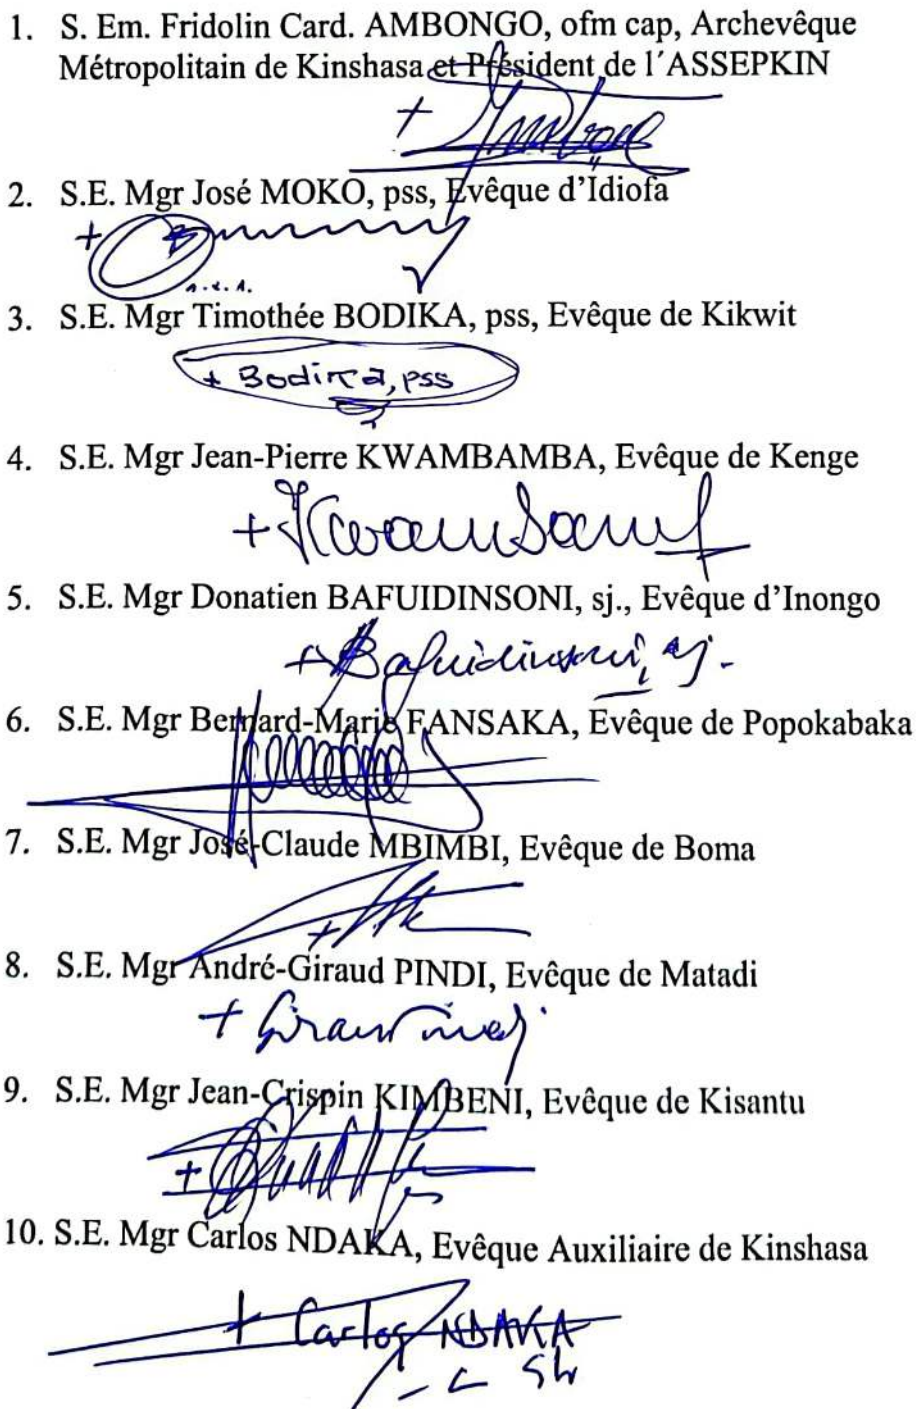 1. S. Em. Fridolin Card. AMBONGO, ofm cap, Archevêque
Métropolitain de Kinshasa et Président de l´ASSEPKIN
+
2. S.E. Mgr José MOKO, pss, Evêque d'Idiofa
+
3. S.E. Mgr Timothée BODIKA, pss, Evêque de Kikwit
+ Bodika, pss
4. S.E. Mgr Jean-Pierre KWAMBAMBA, Evêque de Kenge
+
5. S.E. Mgr Donatien BAFUIDINSONI, sj., Evêque d'Inongo
+ Bafuidinsoni, sj.
6. S.E. Mgr Bernard-Marie FANSAKA, Evêque de Popokabaka
7. S.E. Mgr José-Claude MBIMBI, Evêque de Boma
+
8. S.E. Mgr André-Giraud PINDI, Evêque de Matadi
+
9. S.E. Mgr Jean-Crispin KIMBENI, Evêque de Kisantu
+
10. S.E. Mgr Carlos NDAKA, Evêque Auxiliaire de Kinshasa
+ Carlos NDAKA